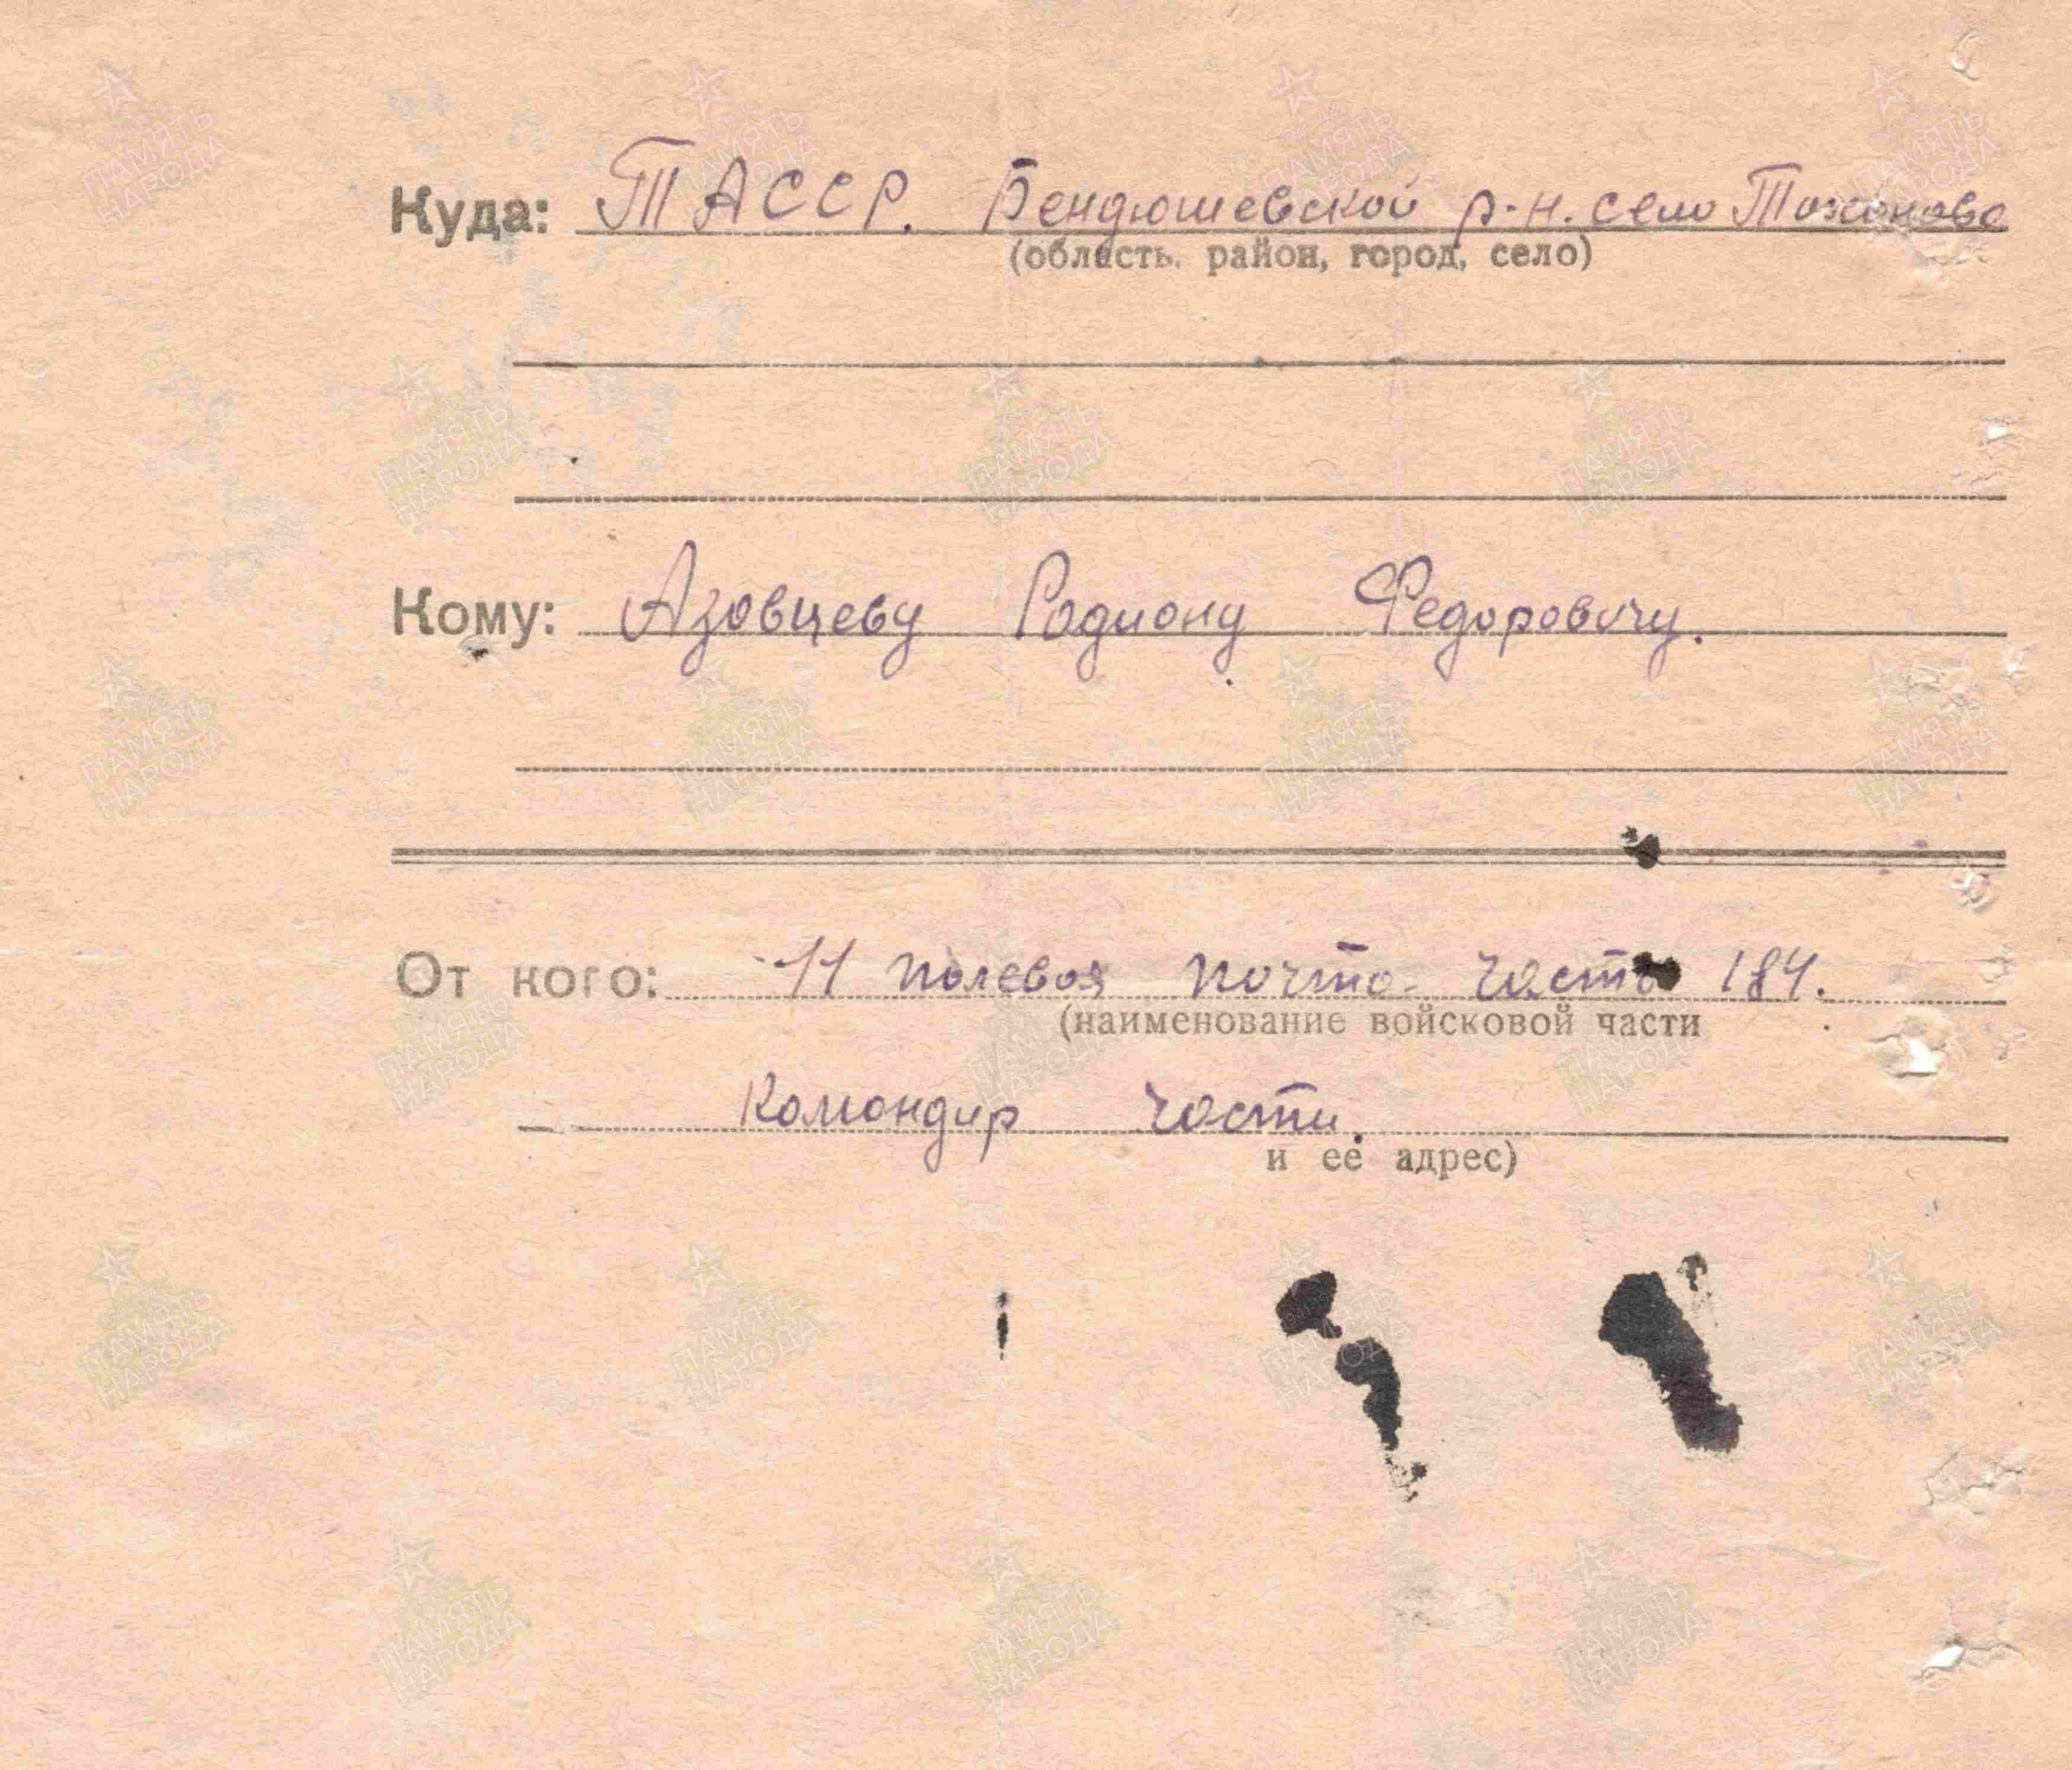 Куда: ТАССР. Бендюшевской р-н. село
(область, район, город, село)
Кому: Азовцеву Родиону Федоровичу.
От кого: 11 полевоя почто. часть 184.
(наименование войсковой части
Командир части.
и ее адрес)
ПАМЯТЬ НАРОДА